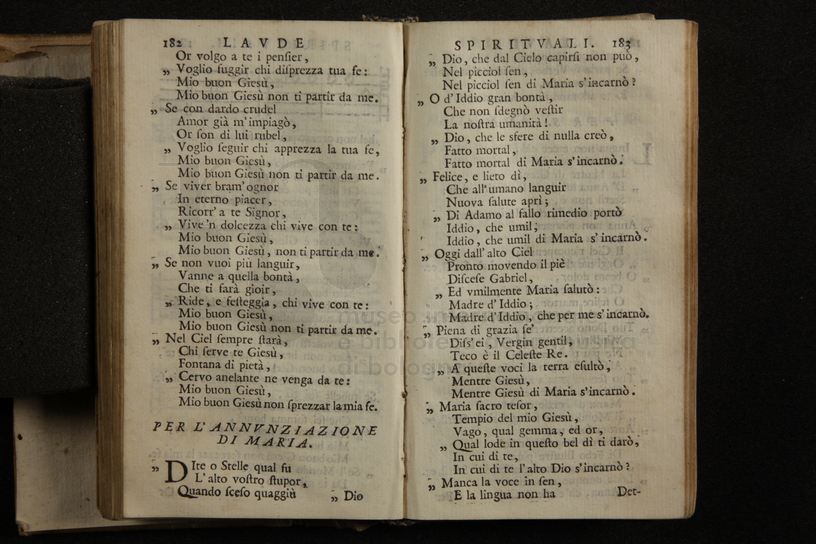 182 LAVDE
Or volgo a te i penſier,
„ Voglio fuggir chi diſprezza tua fe:
Mio buon Gieſù,
Mio buon Gieſù non ti partir da me.
„ Se con dardo crudel
Amor già m'impiagò,
Or ſon di lui rubel,
„ Voglio ſeguir chi apprezza la tua fe,
Mio buon Gieſù,
Mio buon Gieſù non ti partir da me.
„ Se viver bram' ognor
In eterno piacer,
Ricorr' a te Signor,
„ Vive'n dolcezza chi vive con te:
Mio buon Gieſù,
Mio buon Gieſù, non ti partir da me.
„ Se non vuoi più languir,
Vanne a quella bontà,
Che ti farà gioir,
„ Ride, e feſteggia, chi vive con te:
Mio buon Gieſù,
Mio buon Gieſù non ti partir da me.
„ Nel Ciel ſempre ſtarà,
Chi ſerve te Gieſù,
Fontana di pietà,
„ Cervo anelante ne venga da te:
Mio buon Gieſù,
Mio buon Gieſù non ſprezzar la mia fe.
PER L'ANNVNZIAZIONE
DI MARIA.
„ DIte o Stelle qual fu
L'alto voſtro ſtupor,
Quando ſceſo quaggiù „ Dio
SPIRITVALI. 183
„ Dio, che dal Cielo capirſi non può,
Nel picciol ſen,
Nel picciol ſen di Maria s'incarnò?
„ O d'Iddio gran bontà,
Che non ſdegnò veſtir
La noſtra umanità!
„ Dio, che le sfere di nulla creò,
Fatto mortal,
Fatto mortal di Maria s'incarnò.
„ Felice, e lieto dì,
Che all'umano languir
Nuova ſalute aprì;
„ Di Adamo al fallo rimedio portò
Iddio, che umil;
Iddio, che umil di Maria s'incarnò.
„ Oggi dall'alto Ciel
Pronto movendo il piè
Diſceſe Gabriel,
„ Ed vmilmente Maria ſalutò:
Madre d'Iddio;
Madre d'Iddio, che per me s'incarnò.
„ Piena di grazia ſe'
Diſs'ei, Vergin gentil,
Teco è il Celeſte Re.
„ A queſte voci la terra eſultò,
Mentre Gieſù,
Mentre Gieſù di Maria s'incarnò.
„ Maria ſacro teſor,
Tempio del mio Gieſù,
Vago, qual gemma, ed or,
„ Qual lode in queſto bel dì ti darò,
In cui di te,
In cui di te l'alto Dio s'incarnò?
„ Manca la voce in ſen,
E la lingua non ha Det-